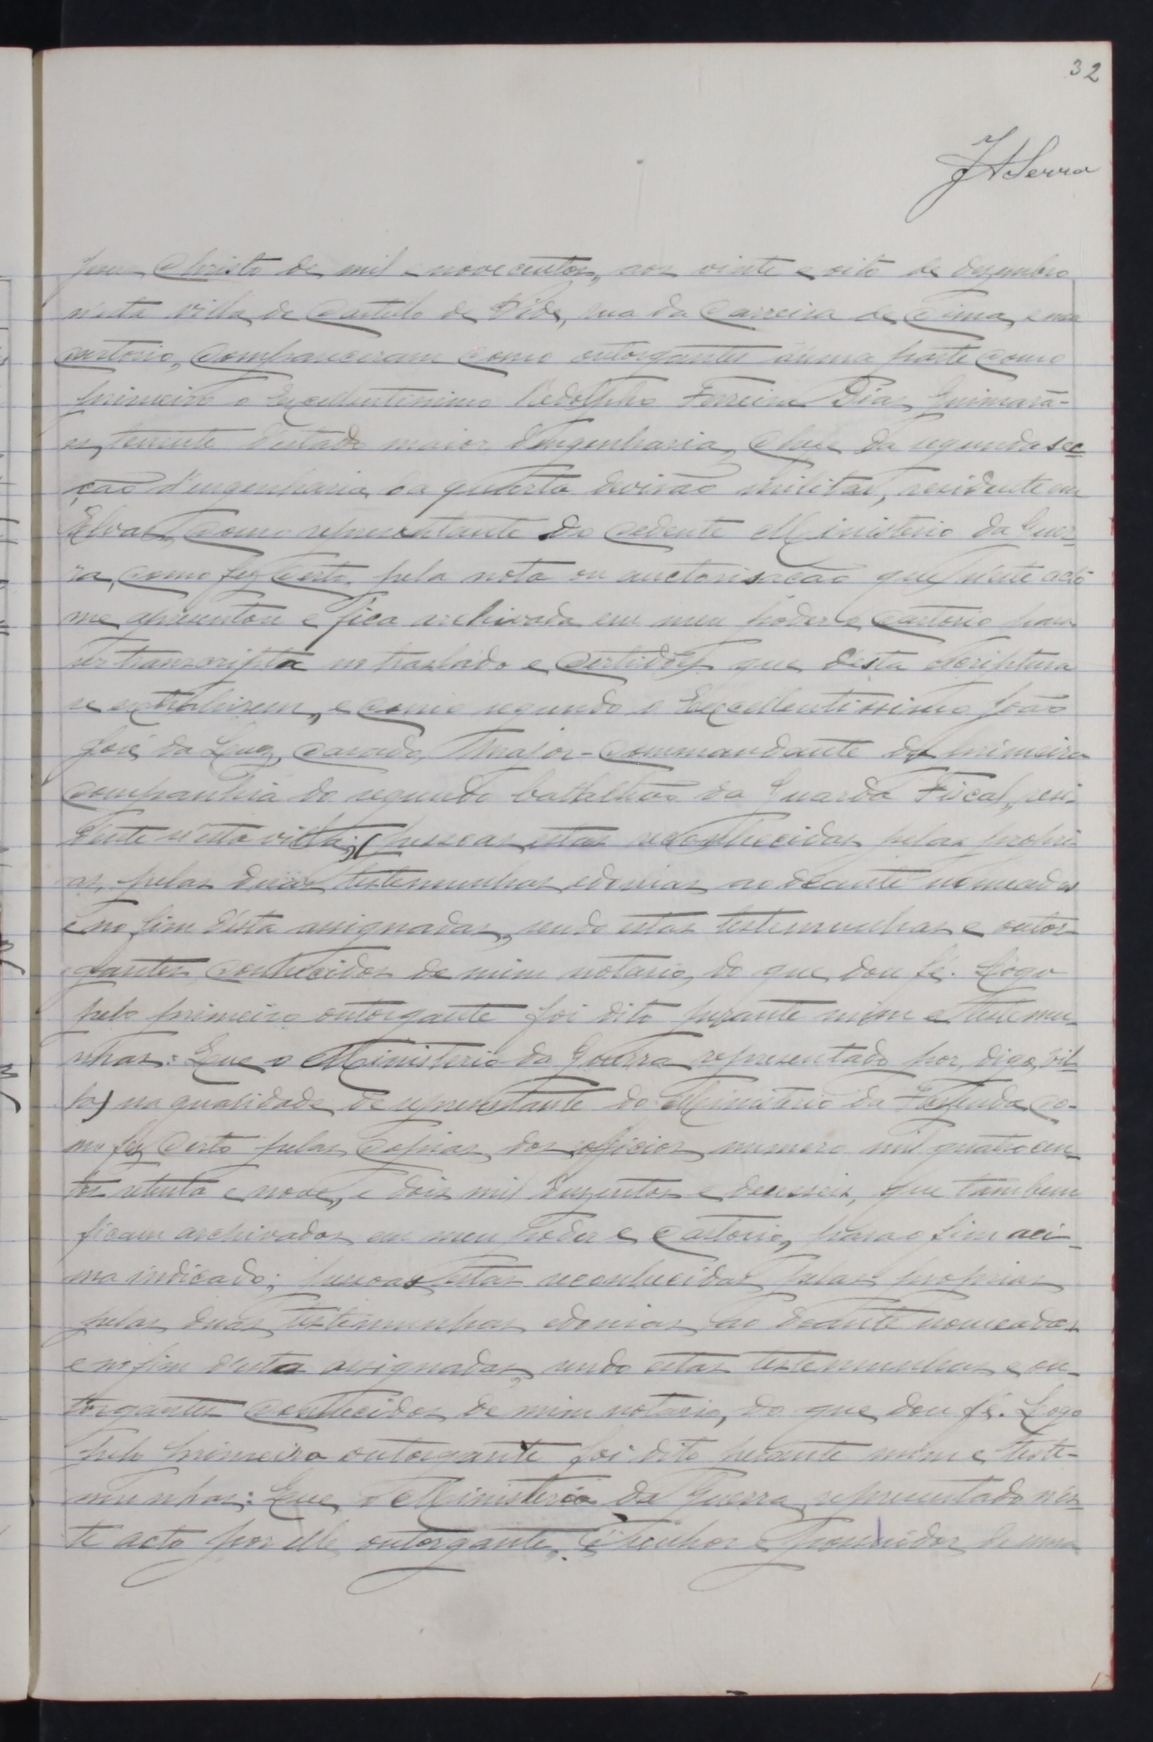 32
JASerra
Jesus Christo de mil e novecentos, aos vinte e oito de dezembro
n'esta villa de Castello de Vide, rua da Carreira de Cima, e meu
cartorio, compareceram como outorgantes n'uma parte como
primeiro o Excellentissimo Rodolpho Ferreira Dias Guimarã-
es, tenente d'estado maior d'engenharia, chefe da segunda sec
ção d'engenharia da quarta divisão militar, residente em
Elvas, como representante do cedente Ministerio da Guer-
ra, como fez certo pela nota ou auctorisação que n'este acto
me apresentou e fica archivada em meu poder e cartorio para
ser transcripta no traslado e certidões que desta escriptura
se extrahirem, e como segundo o Excellentissimo João
José da Luz, casado, Major-Commandante da primeira
companhia do segundo batalhão da Guarda Fiscal, resi-
dente n'esta villa, (pessoas estas reconhecidas pelas propri-
as, pelas duas testemunhas edoneas ao deante nomeadas
e no fim d'esta assignadas, sendo estas testemunhas e outor-
gantes conhecidos de mim notario, do que dou fé. Logo
pelo primeiro outorgante foi dito perante mim e testemu-
nhas: Que o Ministerio da Guerra representado por, digo, vil-
la) na qualidade de representante do Ministerio da Fazenda, co-
mo fez certo pelas copias dos officios numero mil quatrocen-
tos setenta e nove, e dois mil duzentos e dezeseis, que tambem
ficam archivados em meu poder e cartorio, para o fim aci-
ma indicado; pessoas estas reconhecidas pelas proprias
pelas duas testemunhas edoneas ao deante nomeadas
e no fim d'esta assignadas, sendo estas testemunhas e ou-
torgantes conhecidos de mim notario, do que dou fé. Logo
pelo primeiro outorgante foi dito perante mim e teste-
munhas: Que o Ministerio da Guerra, representado n'es-
te acto por elle outorgante, é senhor e possuidor de uma